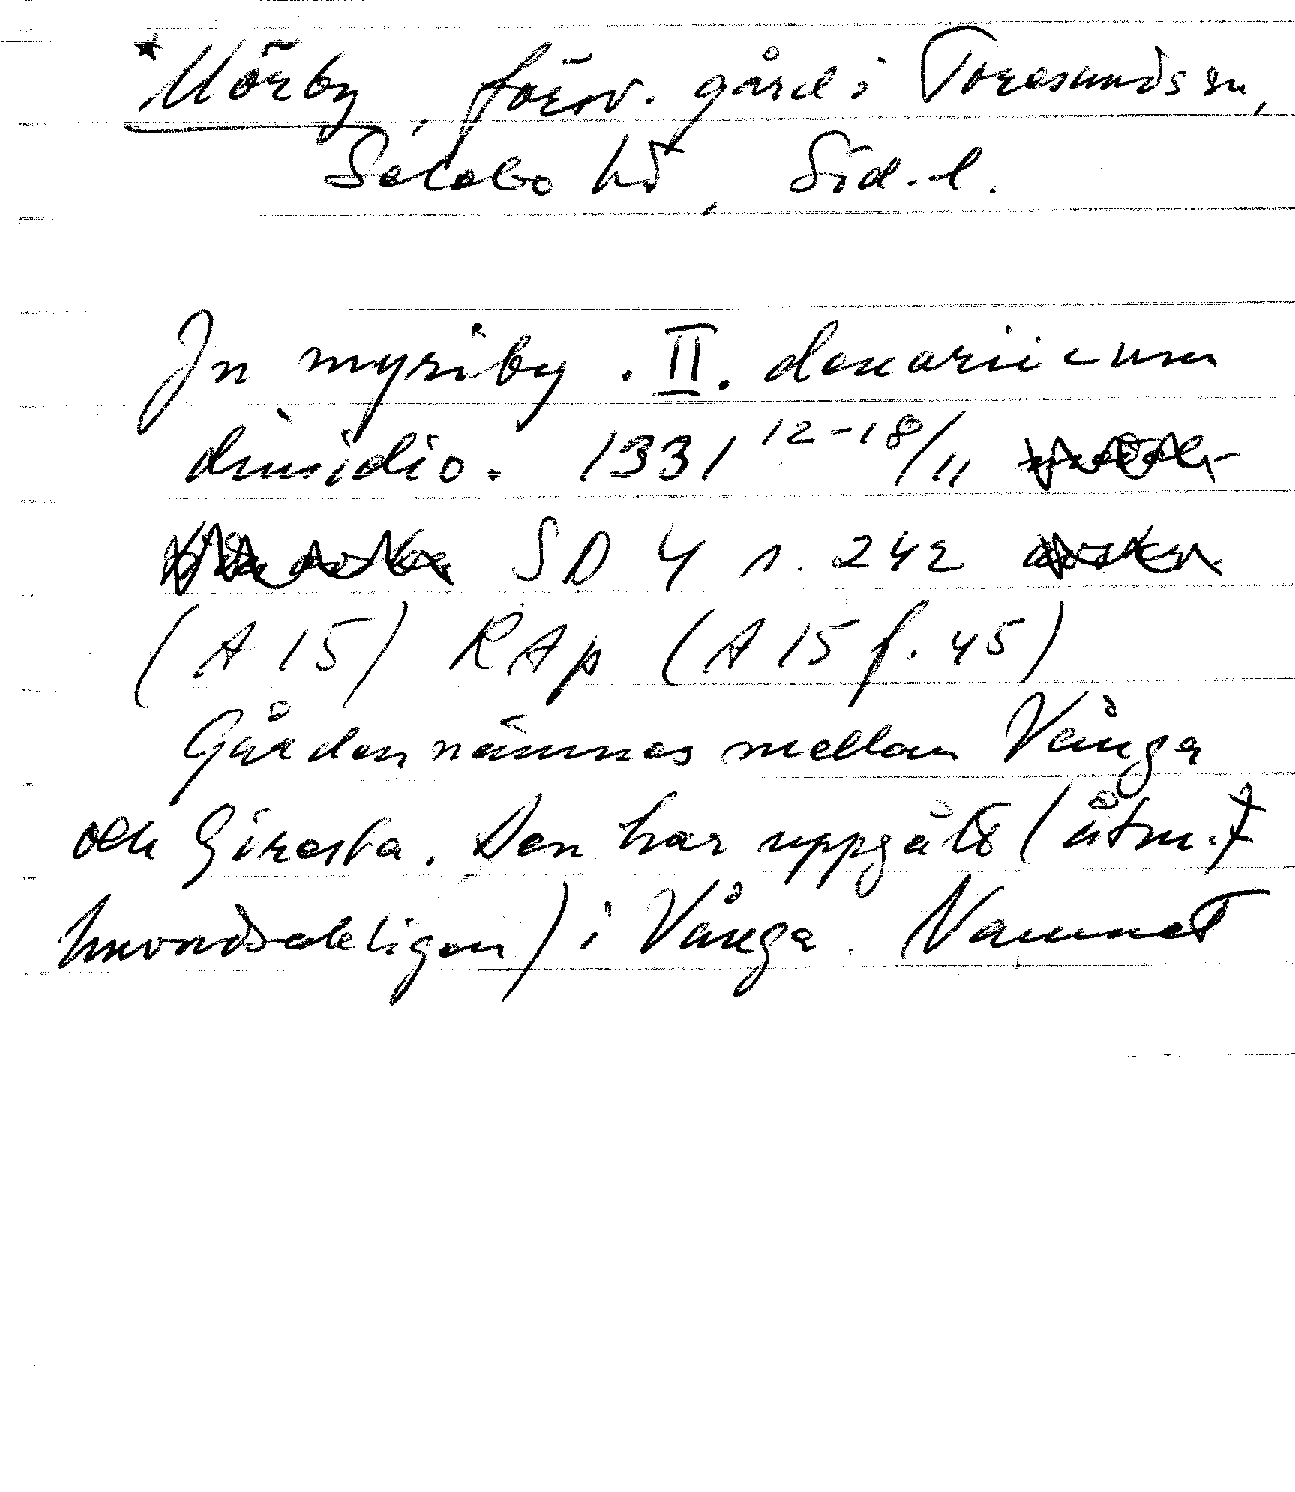 *Mörby, försv. gård i Toresunds sn,
Selebo hd, Söd.l.
In myriby . II. denarii cum
dimidio. 1331 12-18/11
SD 4 s. 242
(A 15) RAp (A 15 f. 45)
Gården nämnes mellan Vånga
och Giresta. Den har uppgått (åtm.
huvudsakligen) i Vånga. Namnet